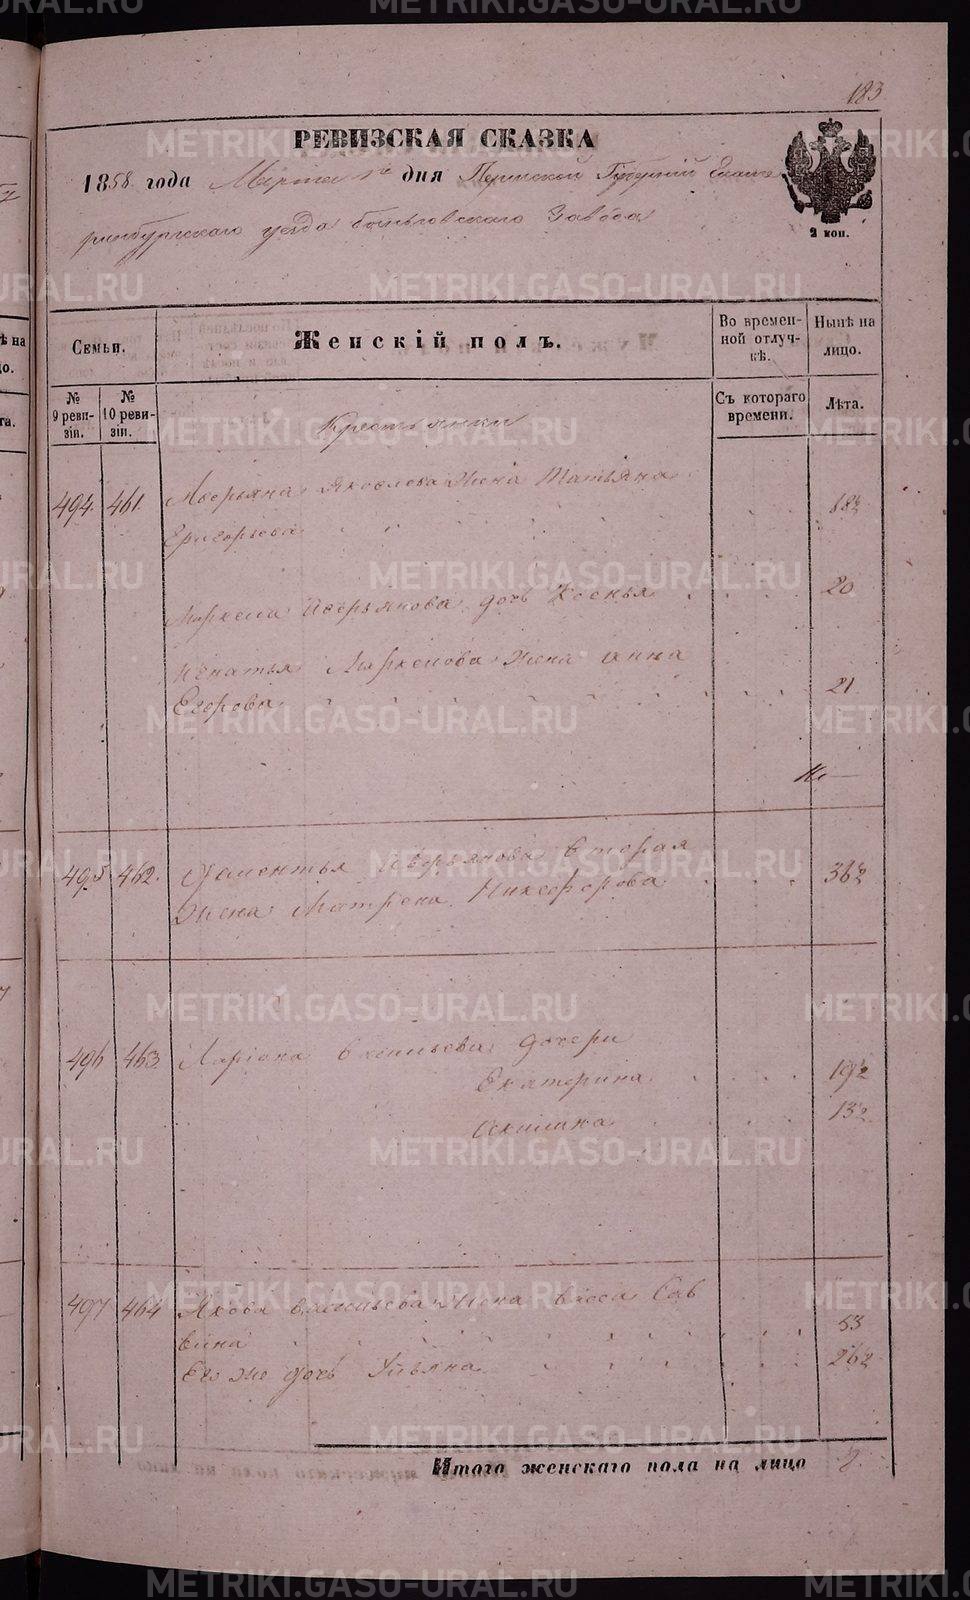 183
РЕВИЗСКАЯ СКАЗКА
1858 года Марта 1го дня Пермской Губерніи Екате
ринбургскаго уезда Быньговскаго Завода
2 коп.
Семьи.
Женскій полъ.
Во времен-
ной отлуч-
кѣ.
Нынѣ на
лицо.
№
9 реви-
зіи.
№
10 реви-
зіи.
Съ котораго
времени.
Лѣта.
Крестьянки
494. 461. Аверьяна Яковлева Жена Татьяна
Григорьева
Маркела Аверьянова дочь Ксенья 20
Игнатья Маркелова Жена Анна
Егорова 21
495 462. Дементья Аверьянова вторая
Жена Матрена Никифорова 36½
496 463. Ларіона Васильева дочери
Екатерина 19½
Акилина 13½
497 464 Якова Васильева Жена Васса Сав
вина 53
Его же дочь Ульяна 26½
Итого женскаго пола на лицо
METRIKI.GASO-URAL.RU